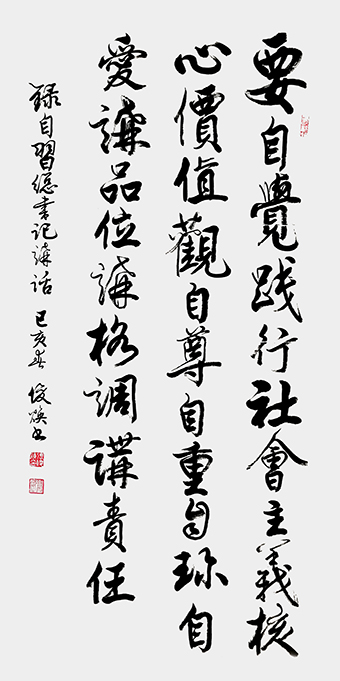 要自覺践行社會主義核
心價值觀自尊自重自珎自
愛講品位講格調講責任
録自習總書记講话 己亥春 俊煥书